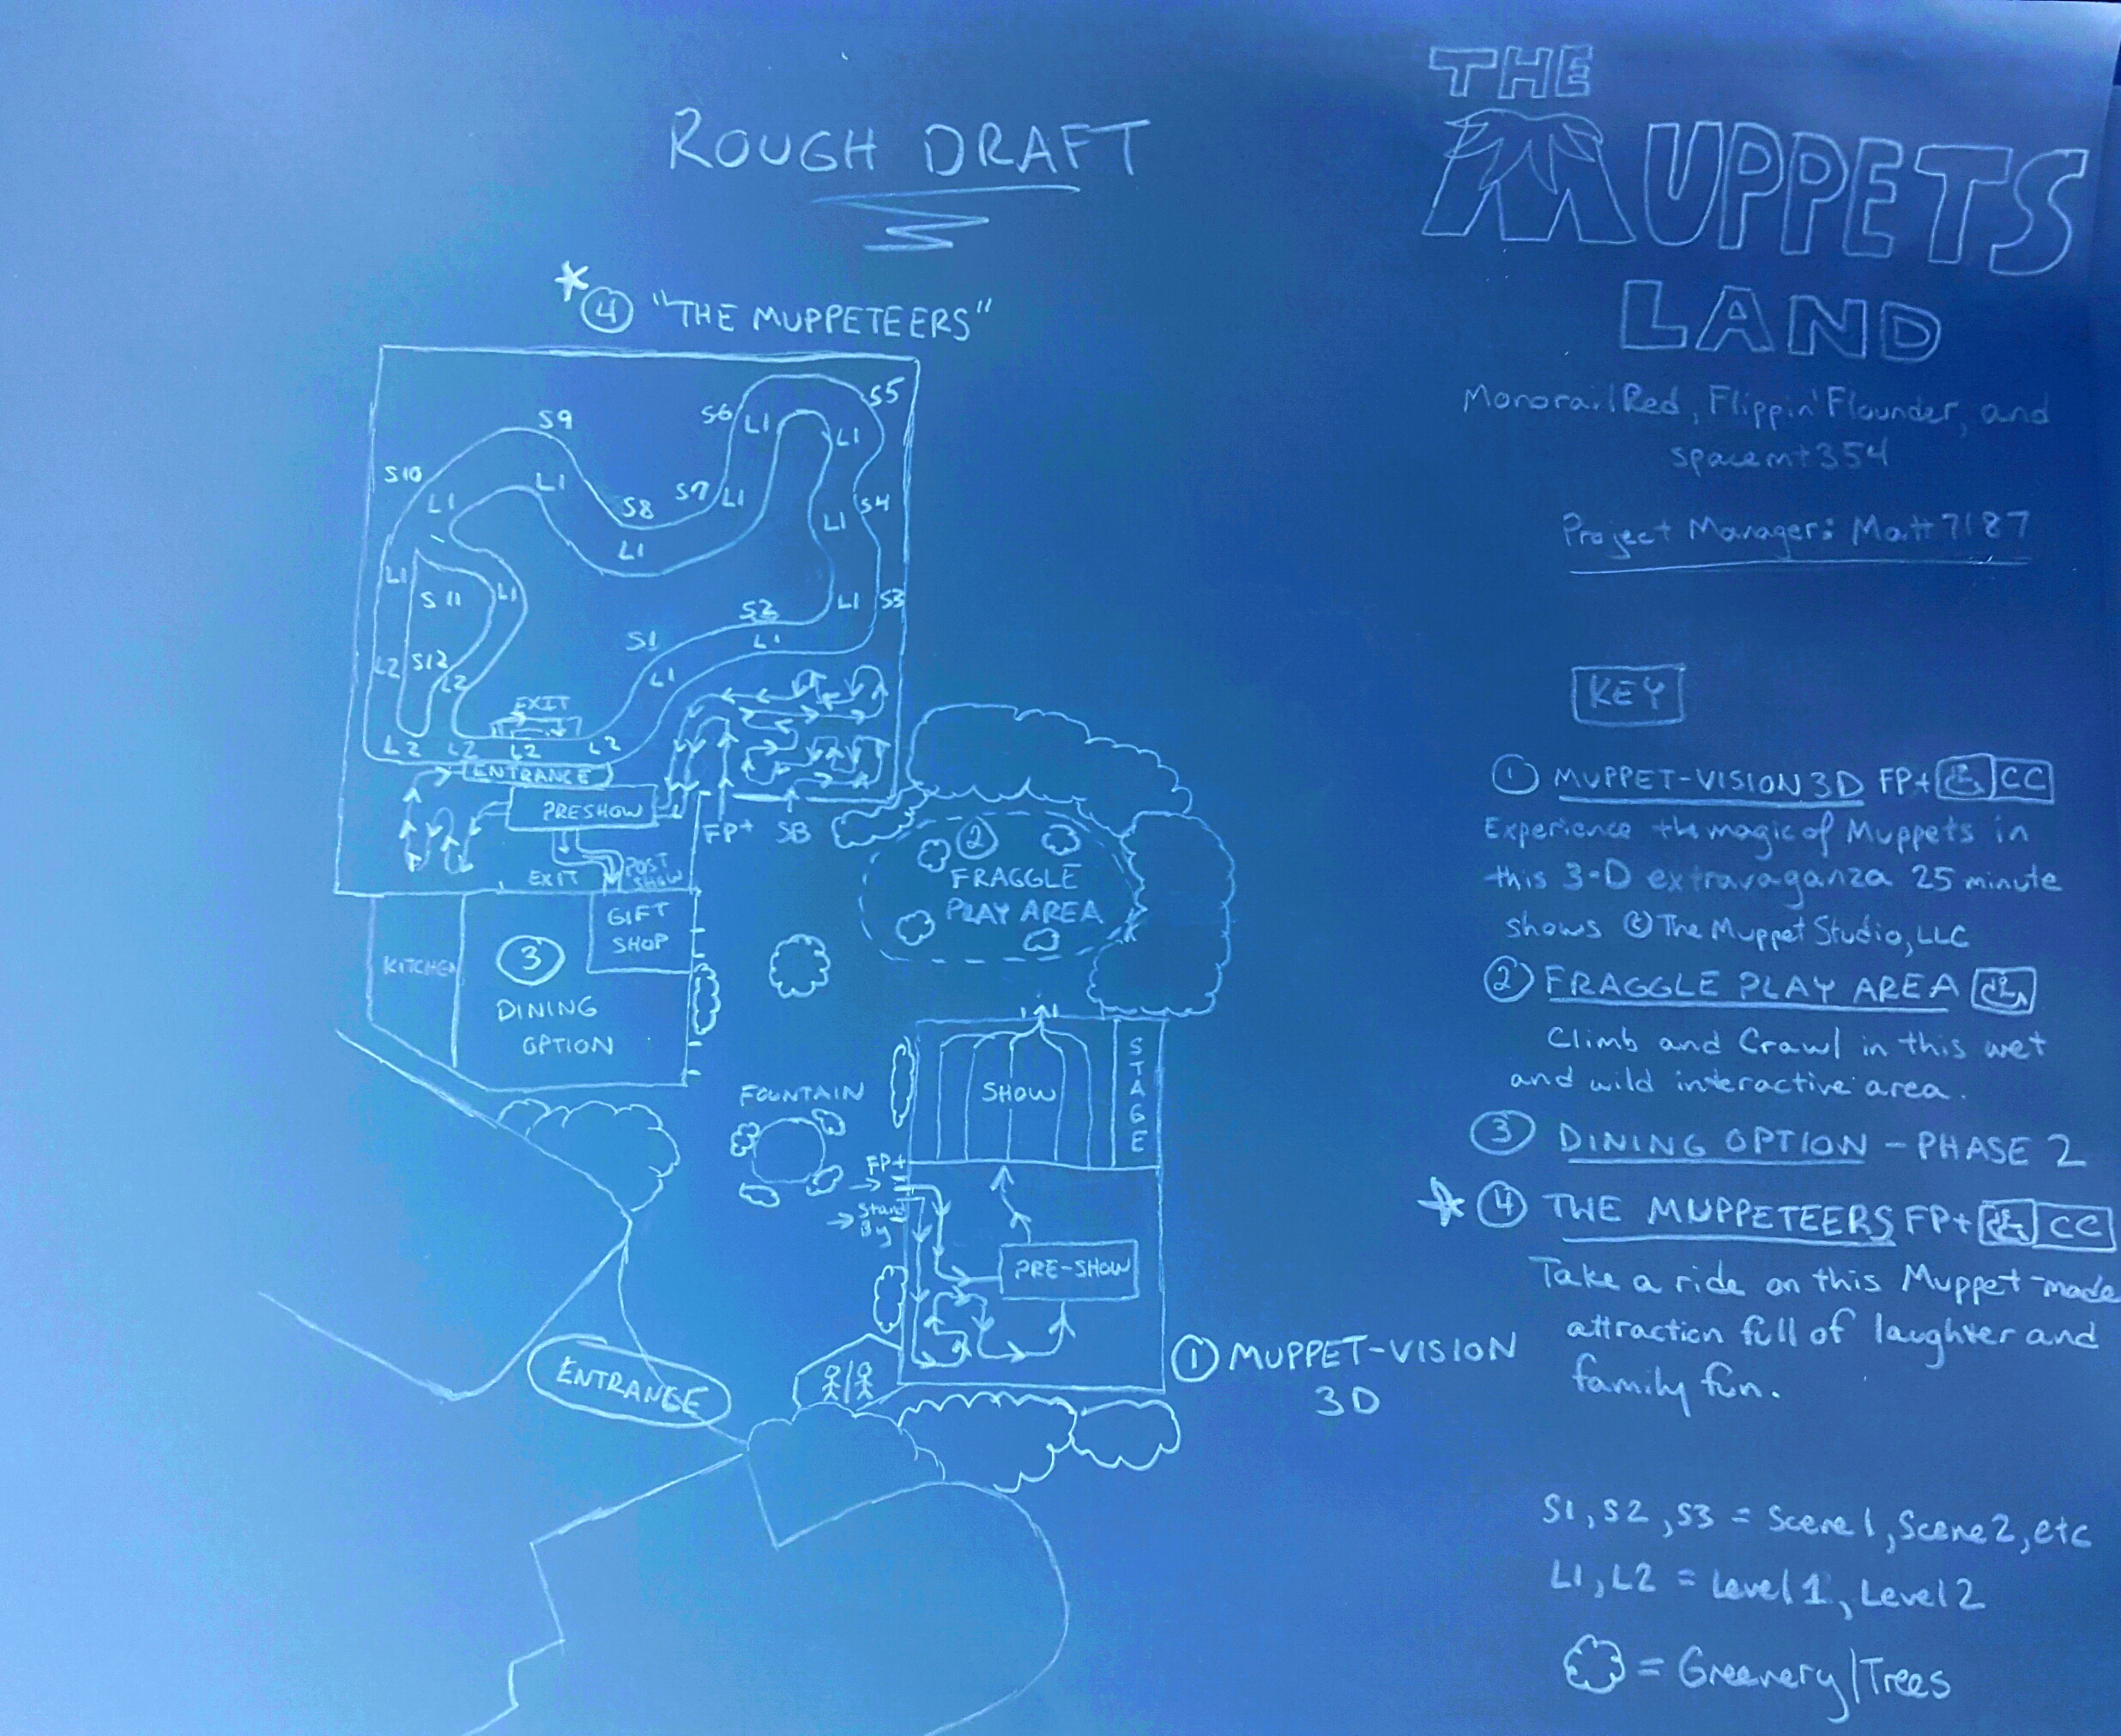 ROUGH DRAFT
THE
MUPPETS
LAND
MonorailRed, Flippin'Flounder, and
spacemt354
Project Manager: Matt7187
* 4 "THE MUPPETEERS"
S5
S6
L1
L1
S9
S10
L1
L1
S7
L1
S8
L1
S4
L1
L1
S11
L1
S2
L1
S3
S1
L1
L2
S12
L2
L1
EXIT
L2
L2
L2
L2
ENTRANCE
PRESHOW
FP+
SB
EXIT
POST
SHOW
GIFT
SHOP
KITCHEN
3
DINING
OPTION
2
FRAGGLE
PLAY AREA
FOUNTAIN
SHOW
STAGE
FP+
Stand
By
PRE-SHOW
1 MUPPET-VISION
3D
ENTRANCE
KEY
1 MUPPET-VISION 3D FP+ CC
Experience the magic of Muppets in
this 3-D extravaganza 25 minute
shows © The Muppet Studio, LLC
2 FRAGGLE PLAY AREA
Climb and Crawl in this wet
and wild interactive area.
3 DINING OPTION - PHASE 2
* 4 THE MUPPETEERS FP+ CC
Take a ride on this Muppet-made
attraction full of laughter and
family fun.
S1, S2, S3 = Scene 1, Scene 2, etc
L1, L2 = Level 1, Level 2
= Greenery/Trees